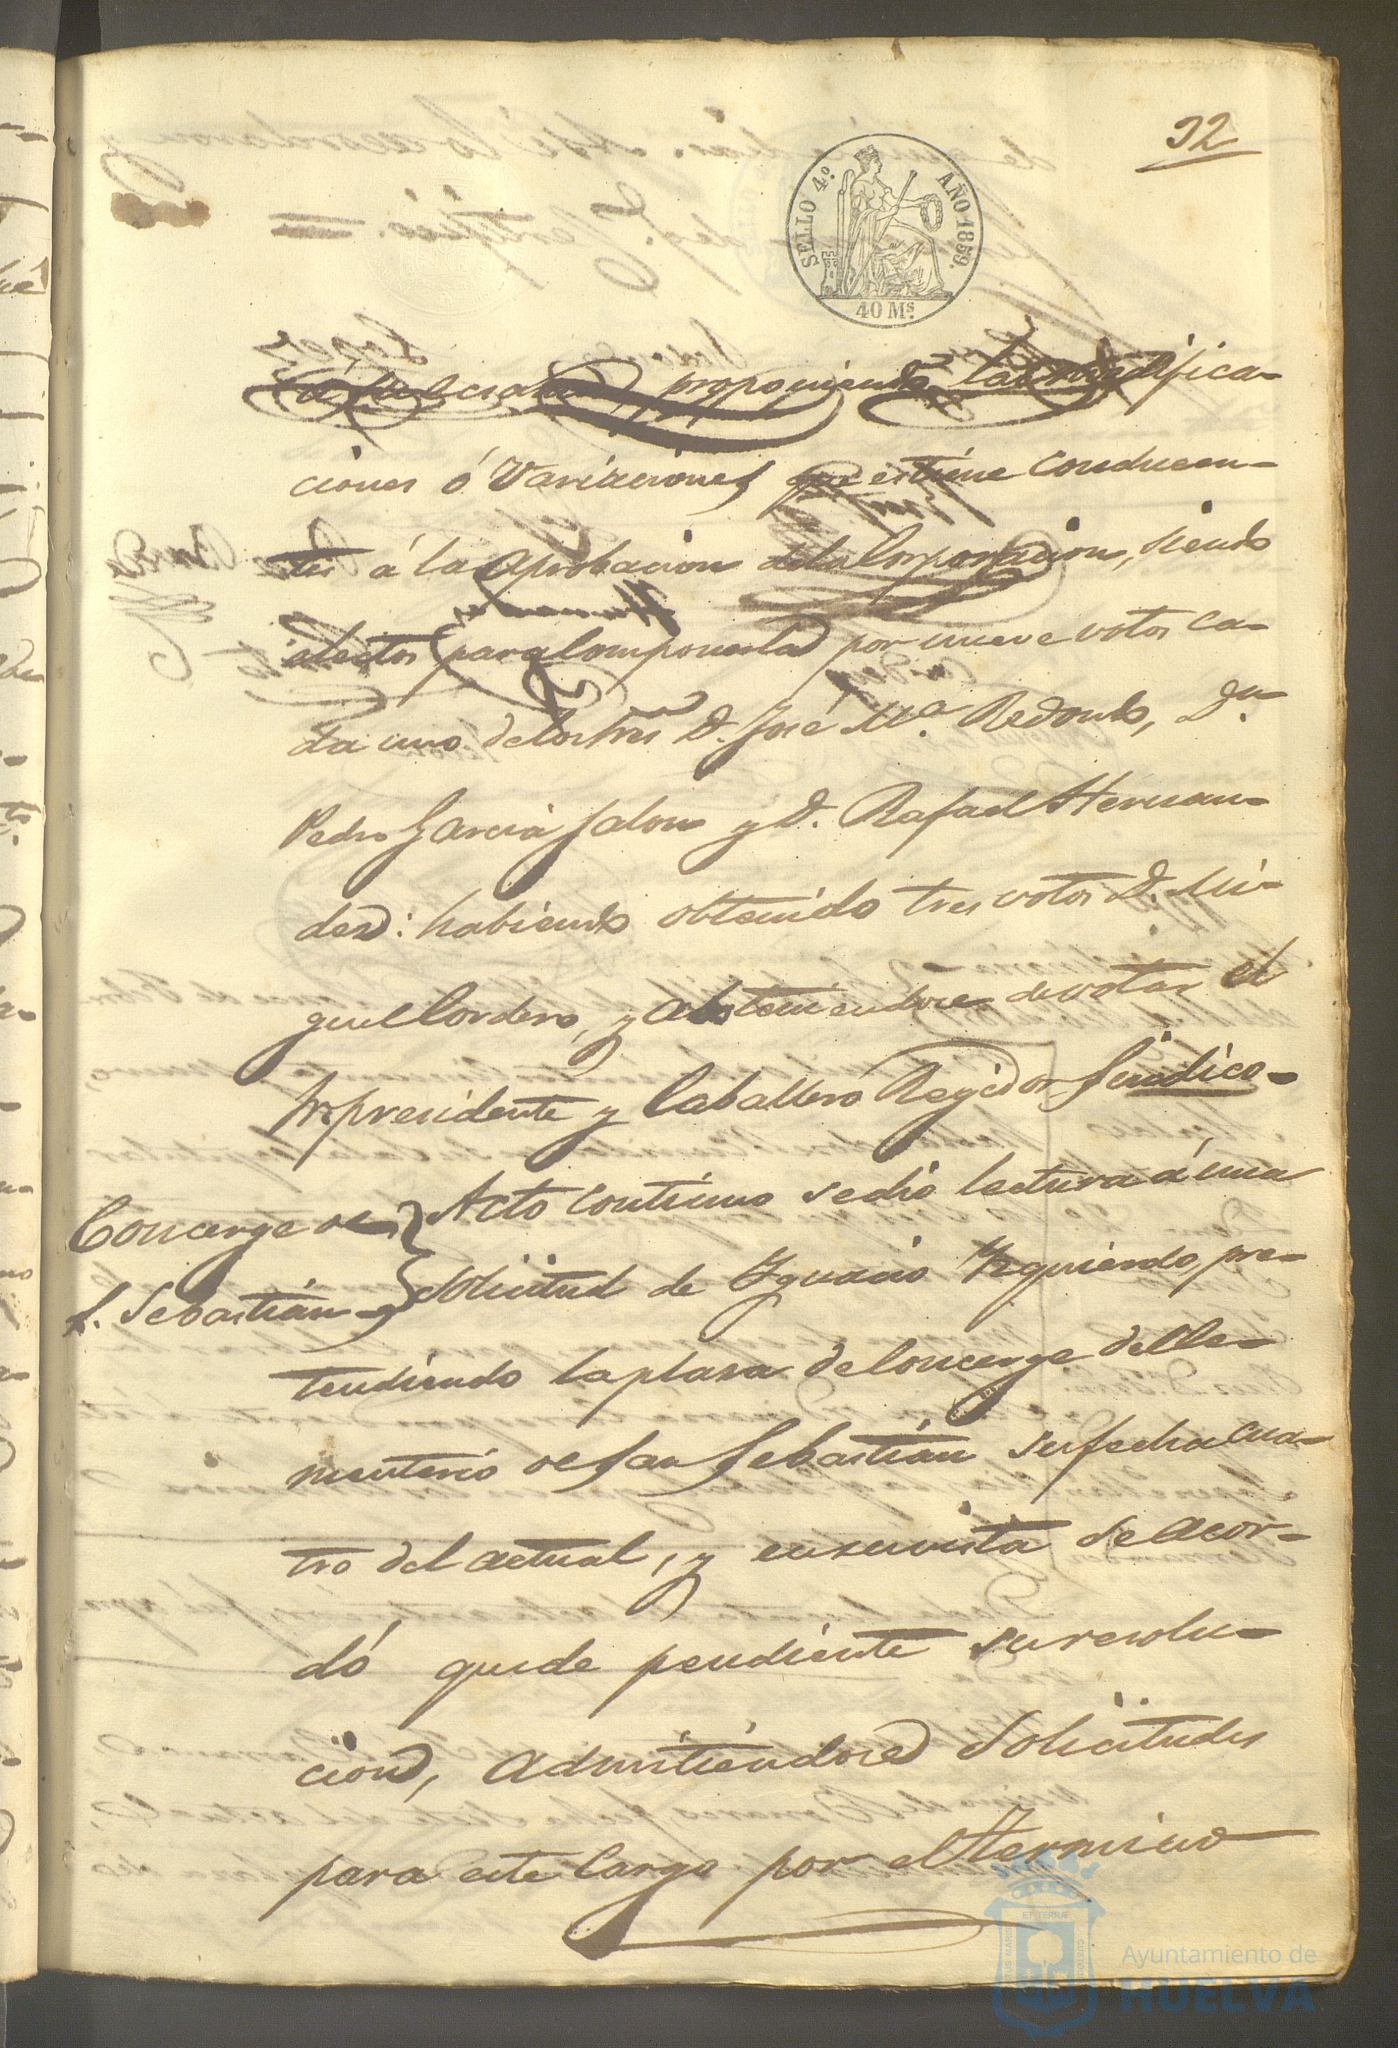 32
SELLO 4º. AÑO 1859.
40 Ms.
proponiendo las modifica-
ciones ó variaciones que estime conducen-
tes á la aprobacion dela Corporacion, siendo
electos para componerla por nueve votos ca-
da uno delos tres D. José Mª. Redondo, Dn.
Pedro Garcia Jalon y D. Rafael Hernan-
dez: habiendo obtenido tres votos D. Mi-
guel Cordero, y absteniendose de votar el
Sr. presidente y Caballero Regidor Sindico-
Concerge de
S. Sebastián
Acto continuo se dió lectura á una
solicitud de Ygnacio Yzquierdo, pre-
tendiendo la plaza de Concerge del Ce-
menterio de San Sebastián su fecha cua-
tro del actual, y en su vista se acor-
dó quede pendiente su resolu-
cion, admitiendose solicitudes
para este Cargo por el termino
Ayuntamiento de
HUELVA